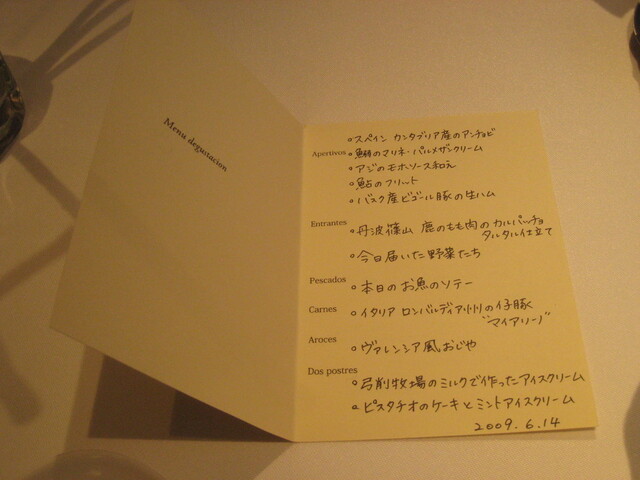 Menu degustacion
・スペイン カンタブリア産のアンチョビ
Aperitivos
・鯛のマリネ・パルメザンクリーム
・アジのモホソース和え
・鮎のフリット
・バスク産ビゴール豚の生ハム
Entrantes
・丹波篠山 鹿のもも肉のカルパッチョ
タルタル仕立て
・今日届いた野菜たち
Pescados
・本日のお魚のソテー
Carnes
・イタリア ロンバルディア州の仔豚
"マイアリーノ"
Aroces
・ヴァレンシア風おじや
Dos postres
・弓削牧場のミルクで作ったアイスクリーム
・ピスタチオのケーキとミントアイスクリーム
2009.6.14